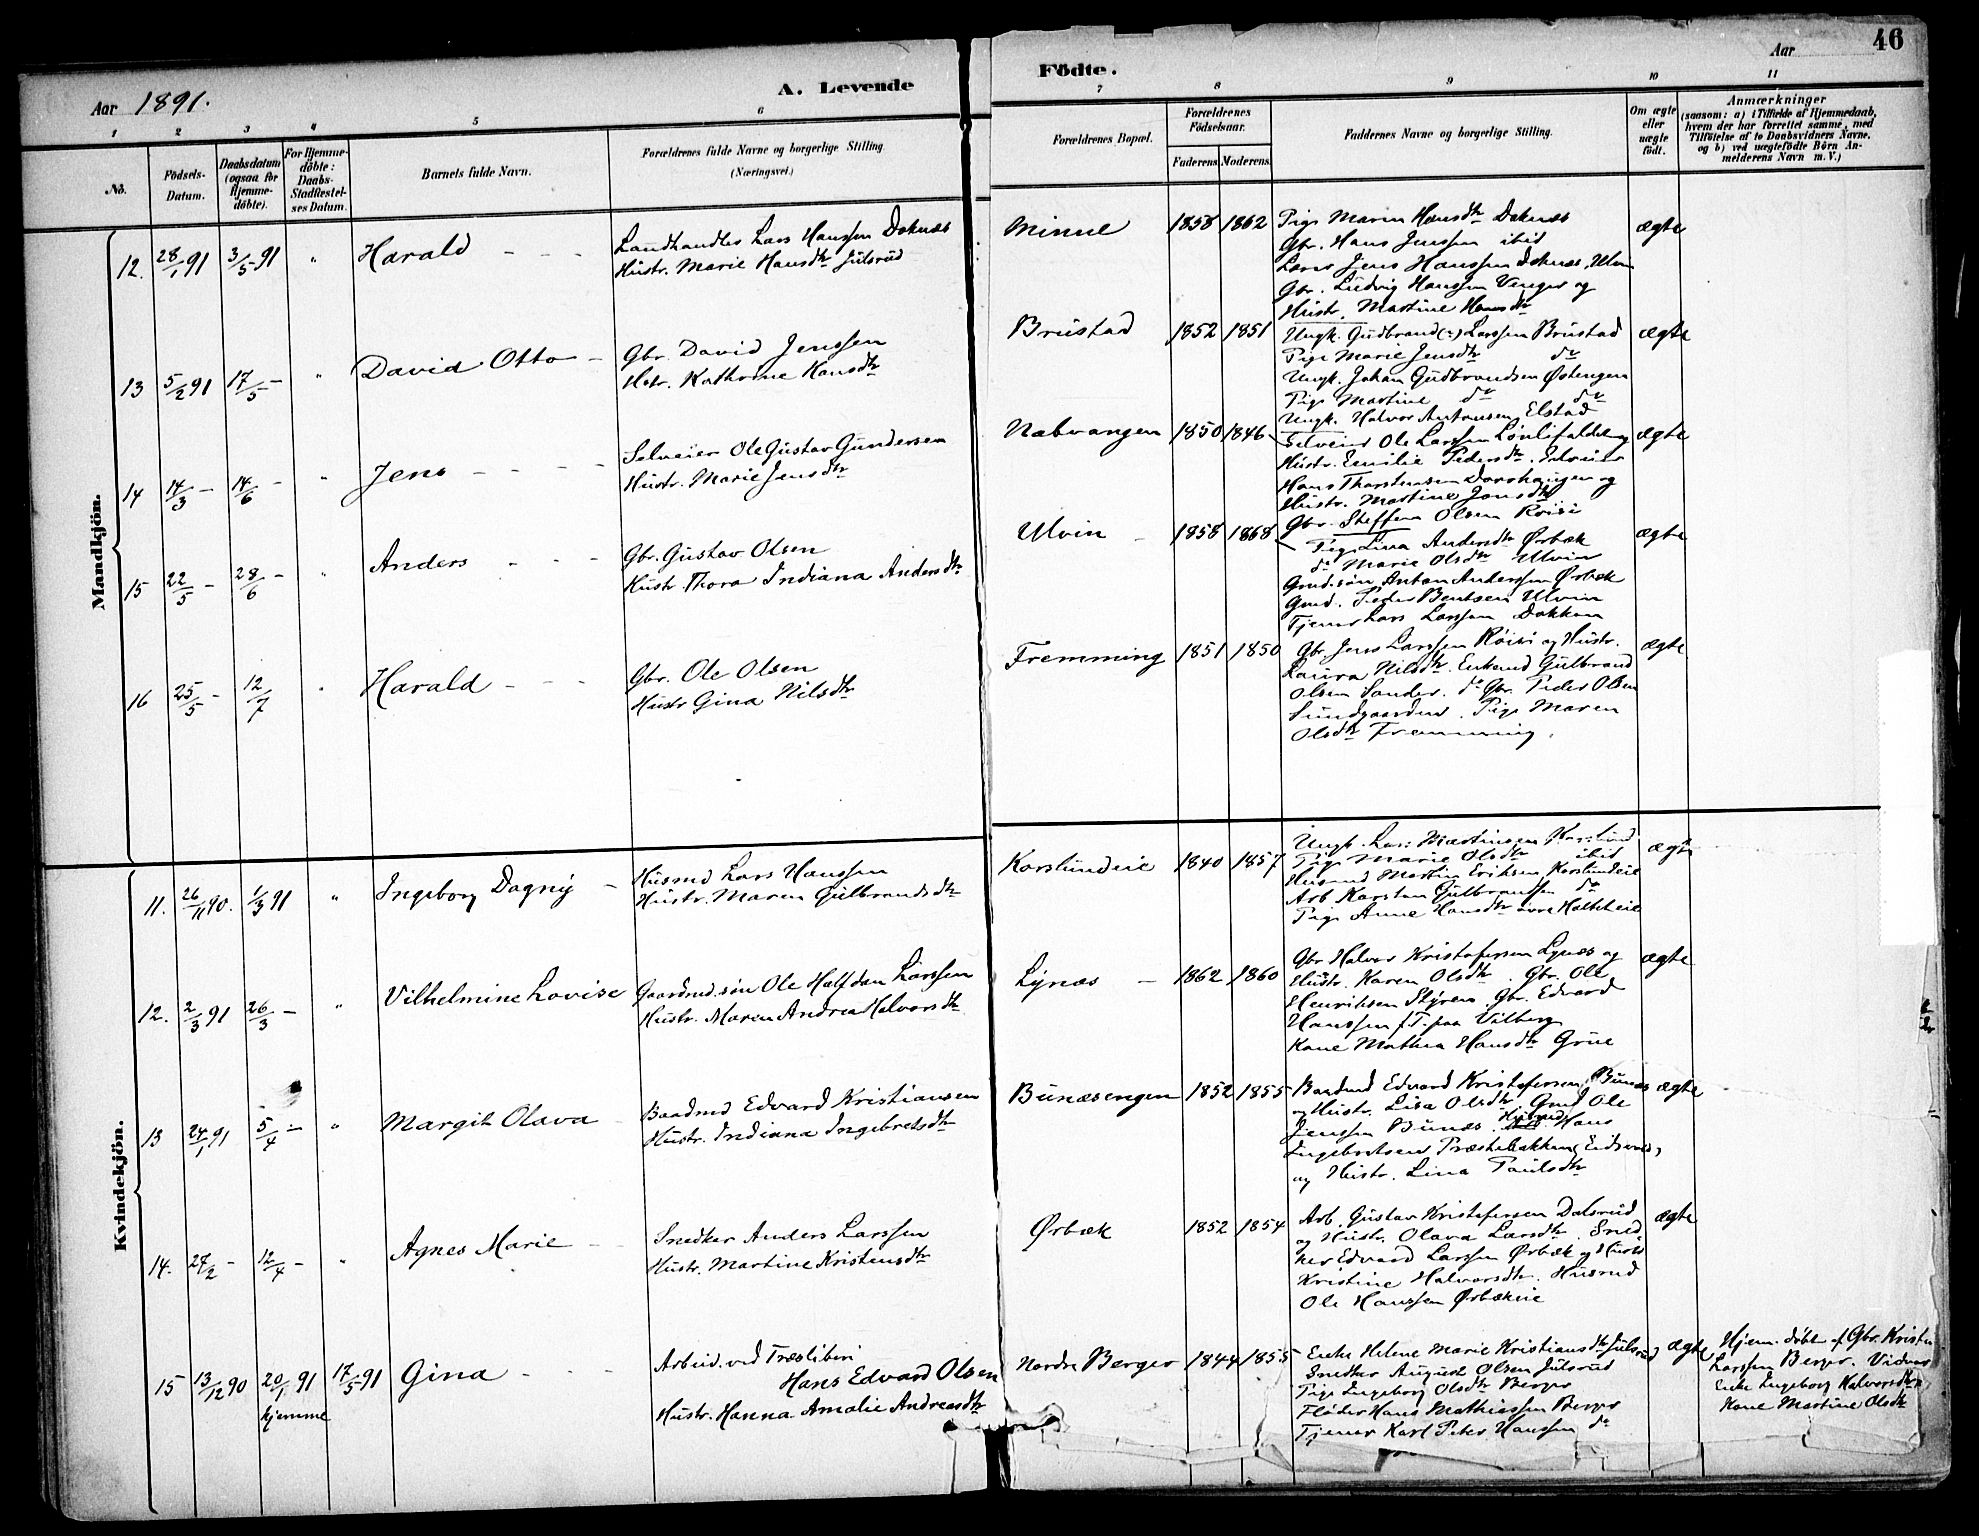 46
Aar 1891.
A. Levende
Födte.
Aar
1 2 3 4 5 6
7 8 9 10 11
No.
Födsels-
Datum.
Daabsdatum
(ogsaa for
Hjemme-
döbte).
For Hjemme-
döbte:
Daabs-
Stadfæstel-
ses Datum.
Barnets fulde Navn.
Forældrenes fulde Navne og borgerlige Stilling
(Næringsvei.)
Forældrenes Bopæl.
Forældrenes
Födselsaar.
Faderens. Moderens.
Faddernes Navne og borgerlige Stilling.
Om ægte
eller
uægte
født.
Anmærkninger
(saasom: a) i Tilfælde af Hjemmedaab,
hvem der har forrettet samme, med
Tilföielse af to Daabsvidners Navne,
og b) ved uægtefödte Börn An-
melderens Navn m. V.)
Mandkjön.
12. 28/1 91 3/5 91 " Harald
Landhandler Lars Hanssen Doknæs
Hustr. Marie Hansdtr Julsrud
Minne 1858 1862
Pige Maren Hansdtr Doknæs
Gbr. Hans Jenssen ibid
Lærer Jens Hanssen Doknæs, Ulvin
Gbr. Ludvig Hanssen Venger og
Hustr. Martine Hansdtr
ægte
13 5/2 91 17/5 - " David Otto -
Gbr. David Jenssen
Hstr. Kathrine Hansdtr
Brustad 1852 1851
Ungk. Gudbrand Larssen Brustad
Pige Marie Jensdtr do
Ungk. Johan Gudbrandsen Østengen
Pige Martine do do
Ungk. Halvor Antonsen Elstad
ægte
14 14/3 - 14/6 - " Jens
Selveier Ole Gustav Gundersen
Hustr. Marie Jensdtr
Næbvangen 1850 1846
Selveier Ole Larssen og
Hustr. Emilie Pedersdtr. Selveier
Hans Thorstensen Dorshaugen og
Hustr. Martine Jansdtr
Gbr. Steffen Olsen Røisi
ægte
15 22/5 - 28/6 - " Anders
Gbr. Gustav Olsen
Hustr. Thora Indiana Andersdtr
Ulvin 1858 1868
Pige Lina Andersdtr Ørbæk
do Marie Olsdtr Ulvin
Gmd.søn Anton Anderssen Ørbæk
Gmd. Peder Bentsen Ulvin
Tjener Lars Larssen Dokken
ægte
16 25/5 - 12/7 " Harald
Gbr. Ole Olsen
Hustr Gina Nilsdtr
Fremming 1851 1850
Gbr Jens Larssen Røisi og Hustr.
Laura Nilsdtr. Enkemd Gulbrand
Olsen Sander. do Gbr. Peder Olsen
Sundgaarden. Pige Maren
Olsdtr Fremming.
ægte
Kvindekjön.
11. 26/11 90. 1/3 91 " Ingeborg Dagny -
Husmd Lars Hanssen
Hustr. Maren Gulbrandsdtr
Korslundeie 1840 1857
Ungk. Lars Martinssen Korslund
Pige Marie Olsdtr ibid
Husmd Martin Eriksen Korslundeie
Arb Karsten Gulbranssen do
Pige Anne Hansdtr øvre Holteeie
ægte
12. 2/3 91 26/3 - " Vilhelmine Lovise
Gaardmd.søn Ole Halfdan Larssen
Hustr. Maren Andrea Halvorsdtr
Lynæs 1862 1860
Gbr Halvor Kristofersen Lynæs og
Hustr. Karen Olsdtr. Gbr. Ole
Henriksen Styren. Gbr. Edvard
Hanssen f. T. paa Vilberg
Kone Mathea Hansdtr Grue
ægte
13 24/1 91 5/4 - " Margit Olava
Baadmd Edvard Kristiansen
Hustr. Indiana Ingebretsdtr
Bunæsengen 1852 1855
Baadmd Edvard Kristofersen Bunæs
og Hustr. Lisa Olsdtr. Gmd Ole
Jenssen Bunæs. Husmd Hans
Ingebretsen Præstebakken, Eidsvold,
og Hustr. Lina Paulsdtr
ægte
14. 27/2 - 12/4 - " Agnes Marie
Snedker Anders Larssen
Hustr. Martine Kristensdtr
Ørbæk 1852 1854
Arb. Gustav Kristofersen Dalsrud
og Hustr. Olava Larsdtr. Sned
ker Edvard Larssen Ørbæk og Hustr
Kristine Halvorsdtr. Husmd
Ole Hanssen Ørbækeie
ægte
15 13/12 90 20/1 91 17/5 91 Gina
hjemme
Arbeid. ved Træsliberi
Hans Edvard Olsen
Hustr. Hanna Amalie Andreasdtr
Nordre Berger 1844 1855
Enke Helene Marie Kristiansdtr Julsrud
Snedker August Olsen Julsrud
Pige Ingeborg Olsdtr Berger
Fløder Hans Mathiassen Berger
Tjener Karl Peter Hanssen do
ægte
Hjem. døbt af Gbr. Kristen
Larssen Berger. Vidner
Enke Ingeborg Halvorsdtr
Kone Martine Olsdtr